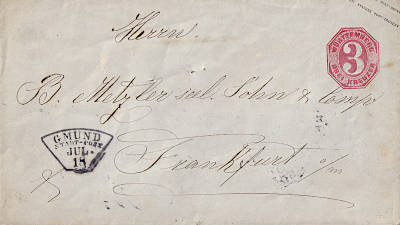 Herrn.
WÜRTTEMBERG
3
DREI KREUZER
B. Metzler sel. Sohn & Comp
GMÜND
STADT-POST
JUL.
18
Frankfurt a/m